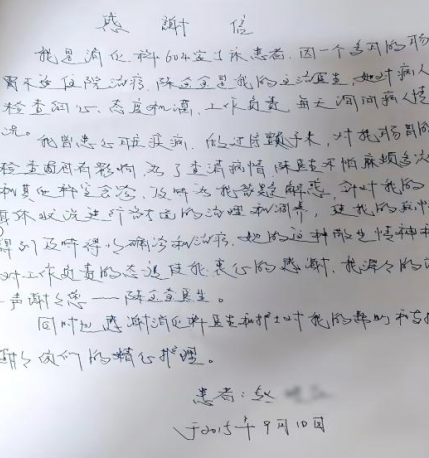 感谢信
我是消化科604室1床患者,因一个多月的肠
胃不适住院治疗,陈 是我的主治医生,她对病人
检查细心、态度和蔼、工作负责、每天询问病人情
况。我曾患 疾病, 过 手术,对我胃肠的
检查 有影响 为了查清病情 陈医生不怕麻烦多次
和其他科室会诊,及时为我答疑解惑,针对我的
具体状况进行 的治理和调养,使我的病情
得到及时得 确诊和治疗,她的这种敬业精神和
对工作负责的态度使我衷心的感谢,我深深的说
一声谢谢您——陈 医生。
同时也感谢消化科医生和护士对我的帮助和支持
谢谢你们的精心护理。
患者:赵
于2015年9月10日